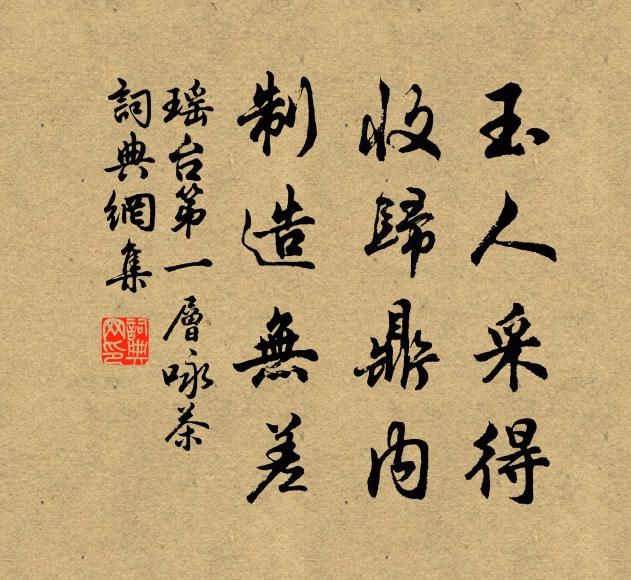 玉人采得
收歸鼎内
制造無差
瑶台第一層咏茶
詞典網集
詞典
网印